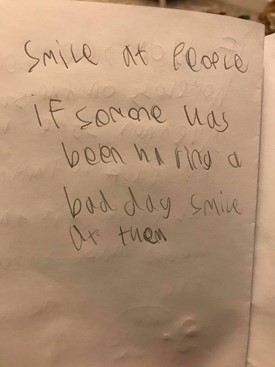 smile at People
if somone has
been haring a
bad day smile
at them